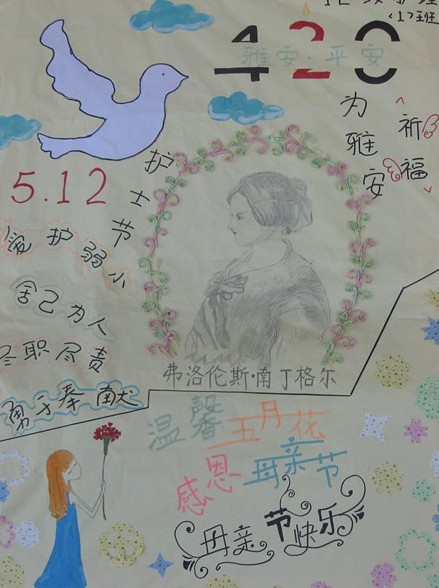 〈17班
420
雅安·平安
为雅安
祈福
5.12
护士节
爱护弱小
舍己为人
尽职尽责
勇于奉献
弗洛伦斯·南丁格尔
温馨五月花
感恩母亲节
母亲节快乐